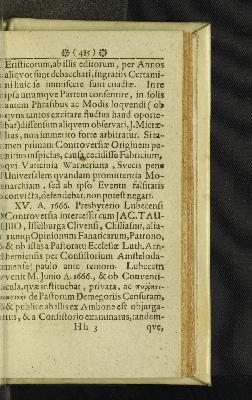 (485)
Eristicorum, ab illis editorum, per Annos
aliquot sunt debacchati, ingratis Certami-
ni huic se immiscere sunt coactæ. In re
ipsa utramque Partem consentire, in solis
autem Phrasibus ac Modis loquendi (ob
quos tantos excitare fluctus haud oporte-
bat) dissensum aliquem observari, J. Micræ-
lius, non immerito forte arbitratur. Sita-
men primam Controversiæ Originem pe-
nitius inspicias, causa cecidisse Fabricium,
qui Vaticinia Warneriana, Svecis pene
Universalem quandam promittentia Mo-
narchiam, sed ab ipso Eventu falsitatis
convicta, defendebat, non potest negari.
XV. A. 1666. Presbyterio Lubecensi
Controversia intercessit cum JAC. TAU-
BIO, Isselburga Clivensi, Chiliasmi, alia-
rumq; Opinionum Fanaticarum, Patrono,
& ob illas a Pastoratu Ecclesiæ Luth. Arn-
hemiensis per Consistorium Amsteloda-
mense paulo ante remoto. Lubecam
venit M. Junio A. 1666., & ob Conventi-
cula, quæ instituebat, privata, ac
de Pastorum Demegoriis Censuram,
& publice ab illis ex Ambone est objurga-
tus, & a Consistorio examinatus, tandem-
Hh 3 que,